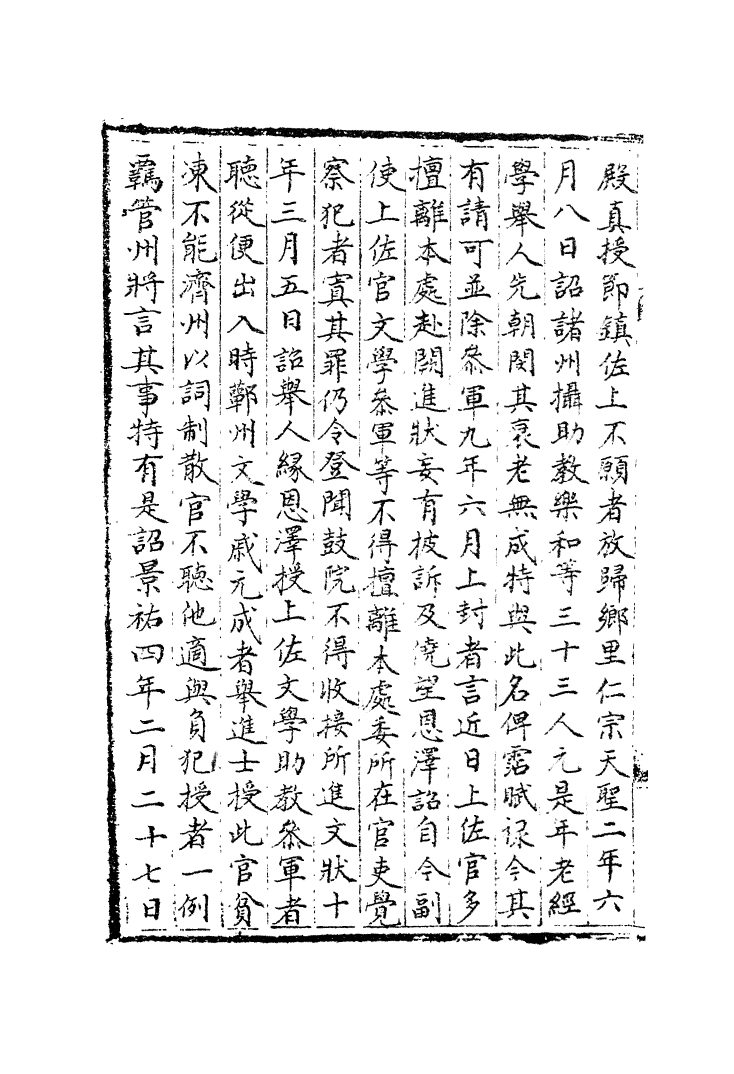 殿真授節鎮佐上不願者放歸鄉里仁宗天聖二年六
月八日詔諸州攝助教樂和等三十三人元是年老經
學舉人先朝閔其衰老無成特與此名俾霑賦禄今其
有請可並除叅軍九年六月上封者言近日上佐官多
擅離本處赴闕進狀妄有披訴及僥望恩澤詔自今副
使上佐官文學叅軍等不得擅離本處委所在官吏覺
察犯者寘其罪仍令登聞鼓院不得收接所進文狀十
年三月五日詔舉人緣恩澤授上佐文學助教叅軍者
聽從便出入時鄆州文學戚元成者舉進士授此官貧
凍不能濟州以詞制散官不聽他適與負犯授者一例
羈管州將言其事特有是詔景祐四年二月二十七日